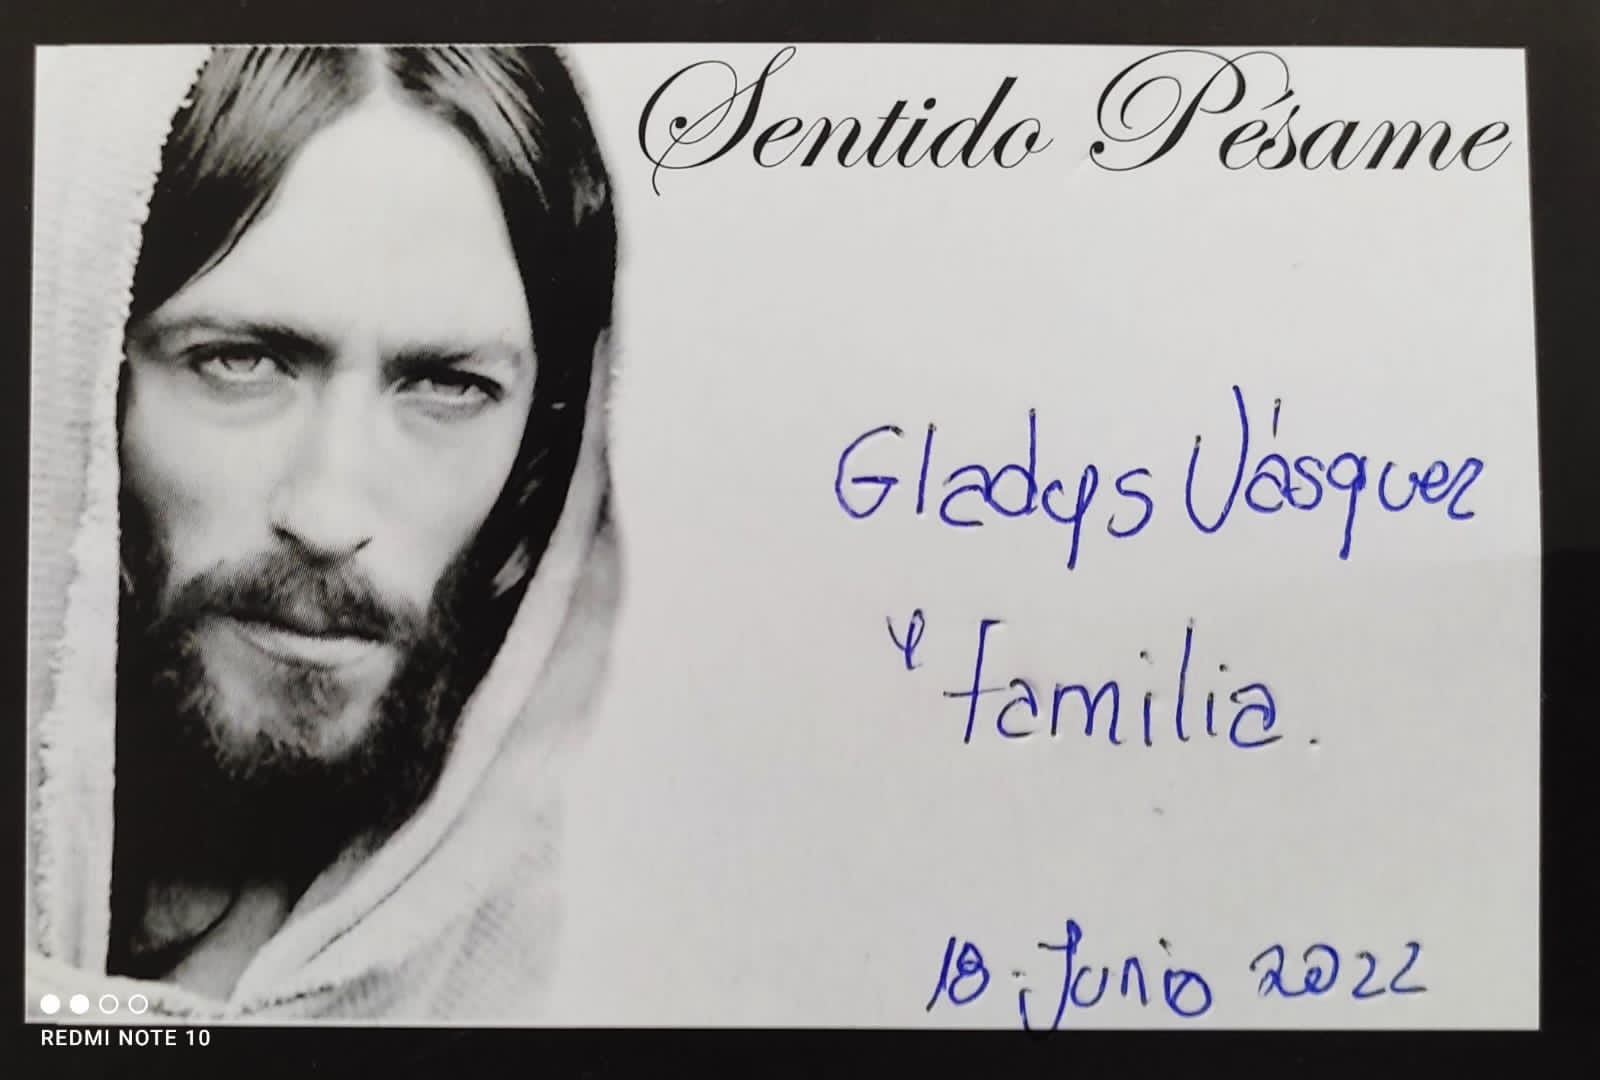 Sentido Pésame
Gladys Vásquez
y familia.
18. Junio 2022
REDMI NOTE 10